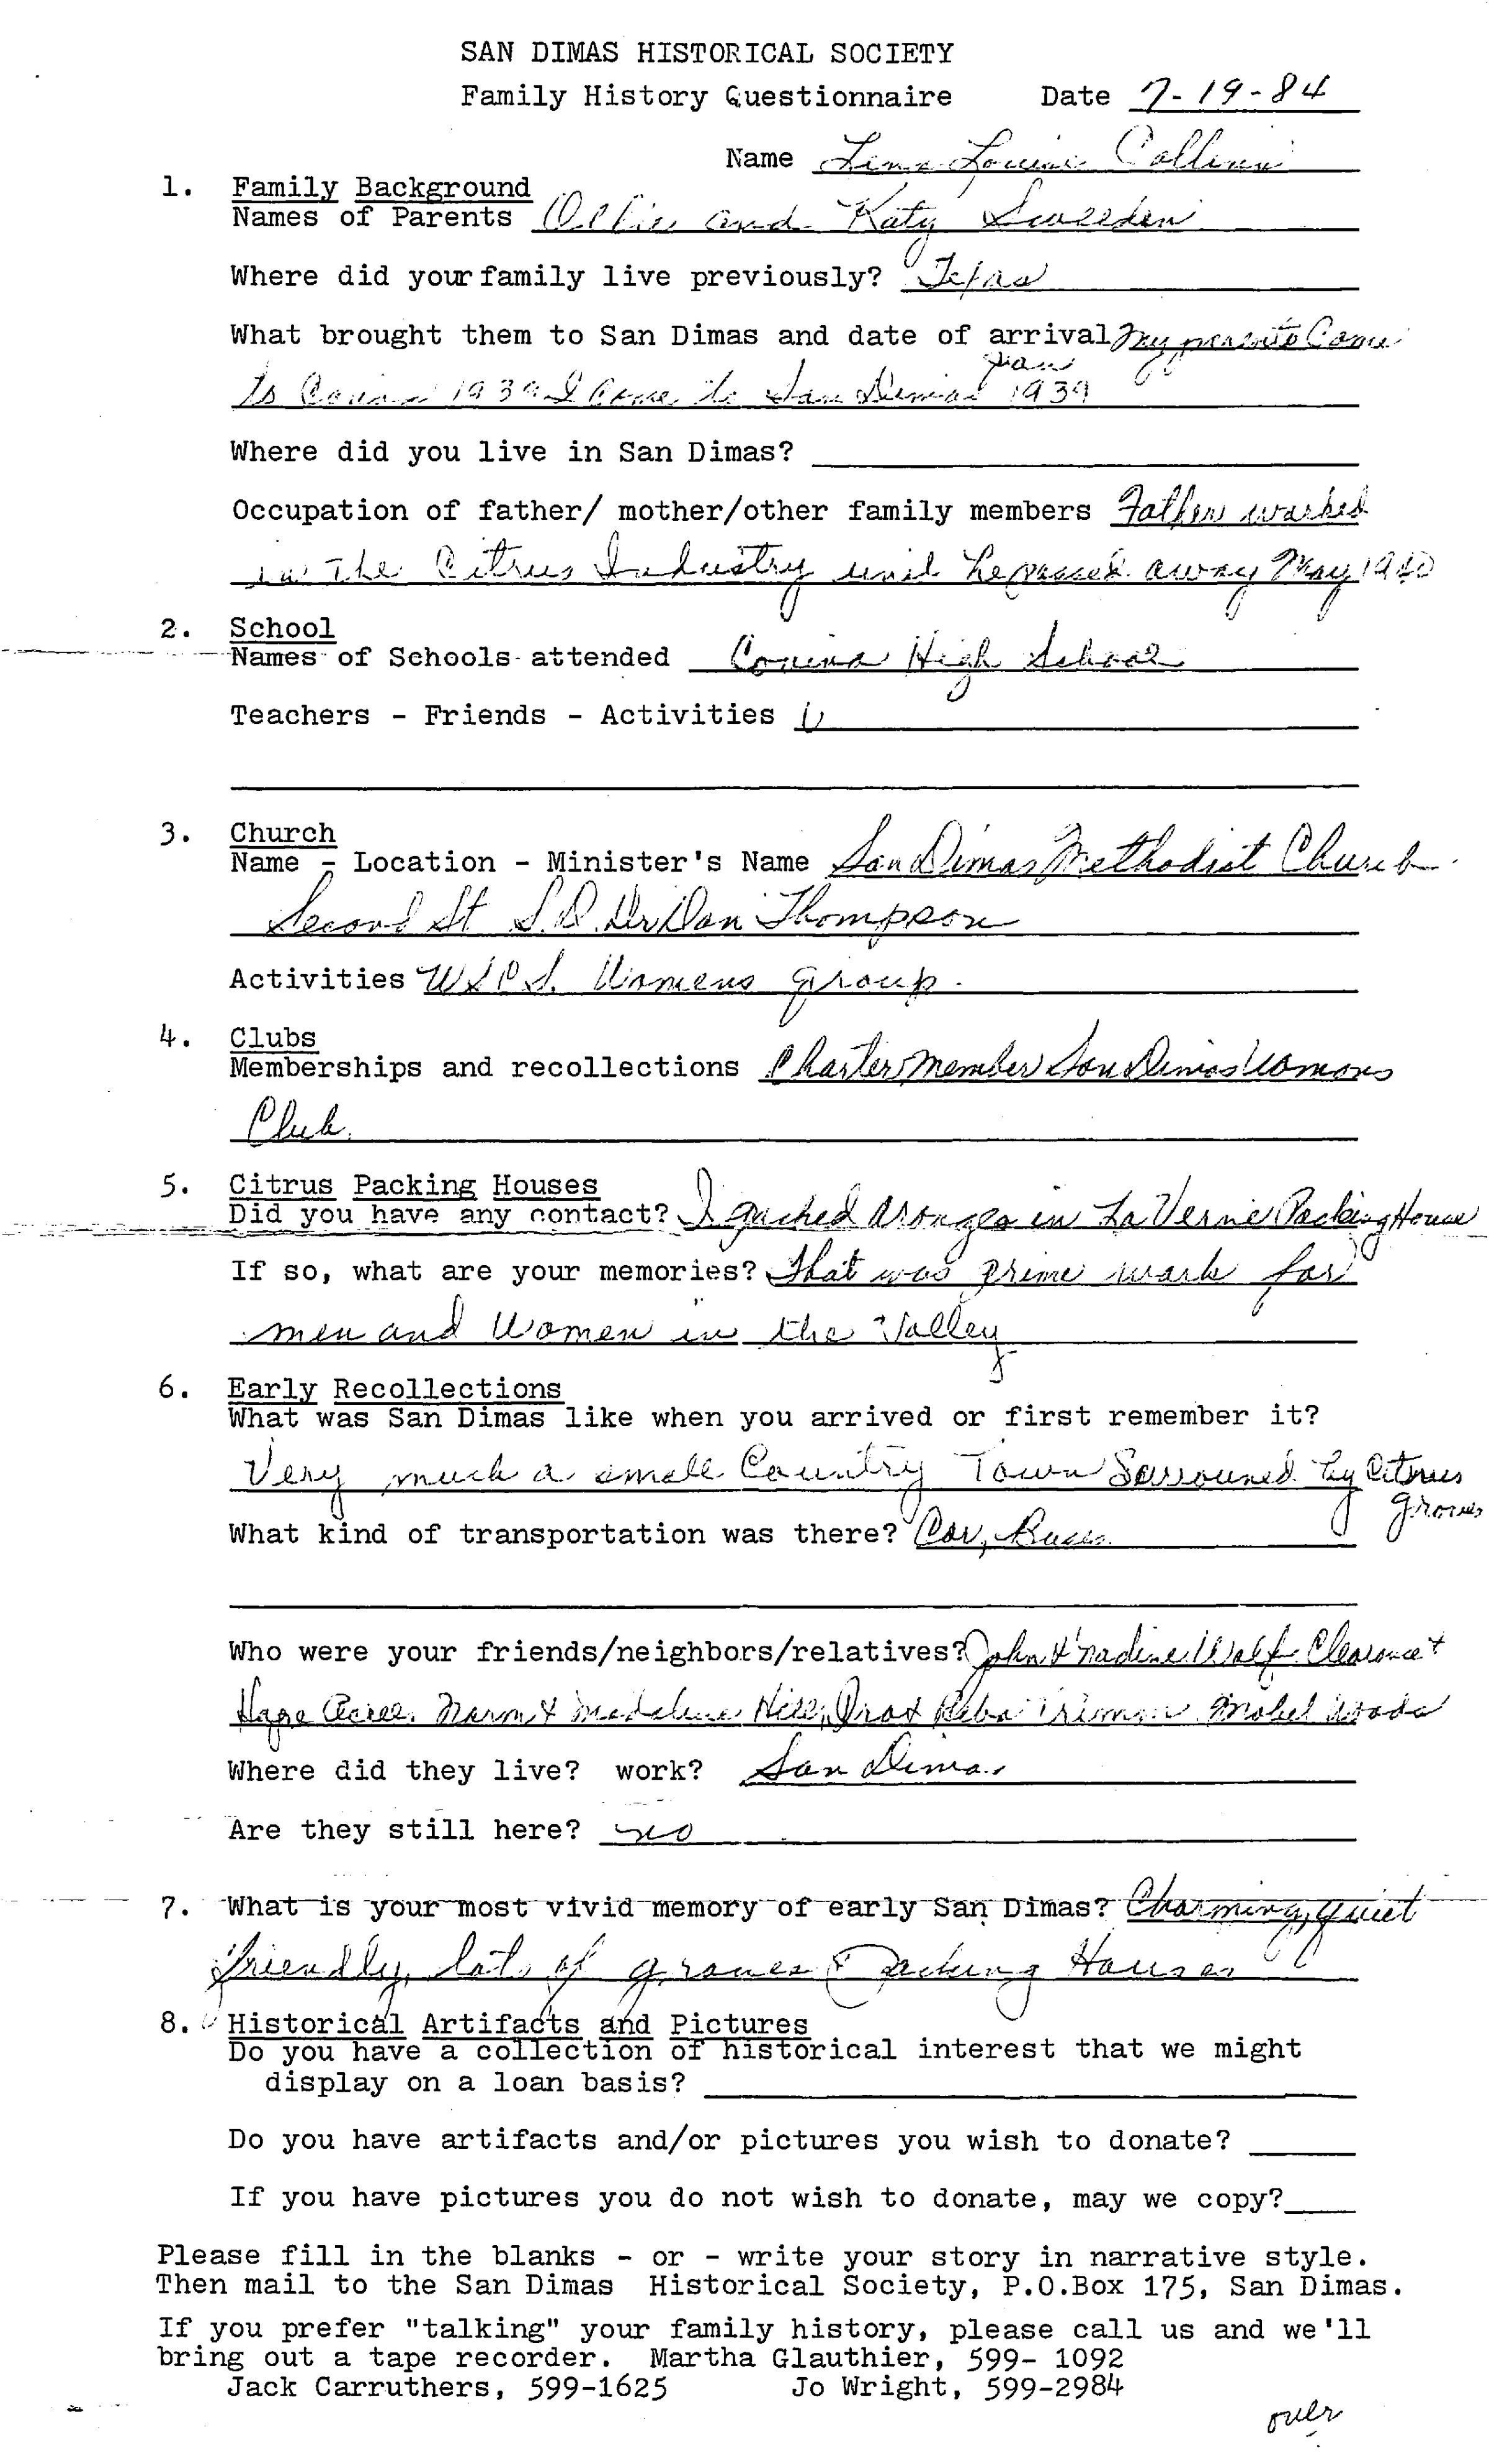 SAN DIMAS HISTORICAL SOCIETY
Family History Questionnaire Date 7-19-84
Name Louise
1. Family Background
Names of Parents Ollie and Katy
Where did your family live previously? Texas
What brought them to San Dimas and date of arrival My parents Came
Jan
to 1939 I Came to San Dimas 1939
Where did you live in San Dimas?
Occupation of father/ mother/other family members Father worked
in The Citrus Industry unil he passed away May 1940
2. School
Names of Schools attended Covina High School
Teachers - Friends - Activities
3. Church
Name - Location - Minister's Name San Dimas Methodist Church
Second St S.D. Dr Dan Thompson
Activities W.S.C.S. Womens group.
4. Clubs
Memberships and recollections Charter member San Dimas Womans
Club.
5. Citrus Packing Houses
Did you have any contact? I packed oranges in La Verne Packing House
If so, what are your memories? That was prime work for
men and Women in the Valley
6. Early Recollections
What was San Dimas like when you arrived or first remember it?
Very much a small Country Town Sarrouned by Citrus
groves
What kind of transportation was there? Car, Buses
Who were your friends/neighbors/relatives? John & Nadine Clearance +
Norm & Madalene Hill, Reba Mabel Woods
Where did they live? work? San Dimas
Are they still here? no
7. What is your most vivid memory of early San Dimas? Charming, quiet
friendly, lots of groves & Packing Houses
8. Historical Artifacts and Pictures
Do you have a collection of historical interest that we might
display on a loan basis?
Do you have artifacts and/or pictures you wish to donate?
If you have pictures you do not wish to donate, may we copy?
Please fill in the blanks - or - write your story in narrative style.
Then mail to the San Dimas Historical Society, P.O.Box 175, San Dimas.
If you prefer "talking" your family history, please call us and we'll
bring out a tape recorder. Martha Glauthier, 599- 1092
Jack Carruthers, 599-1625 Jo Wright, 599-2984
over